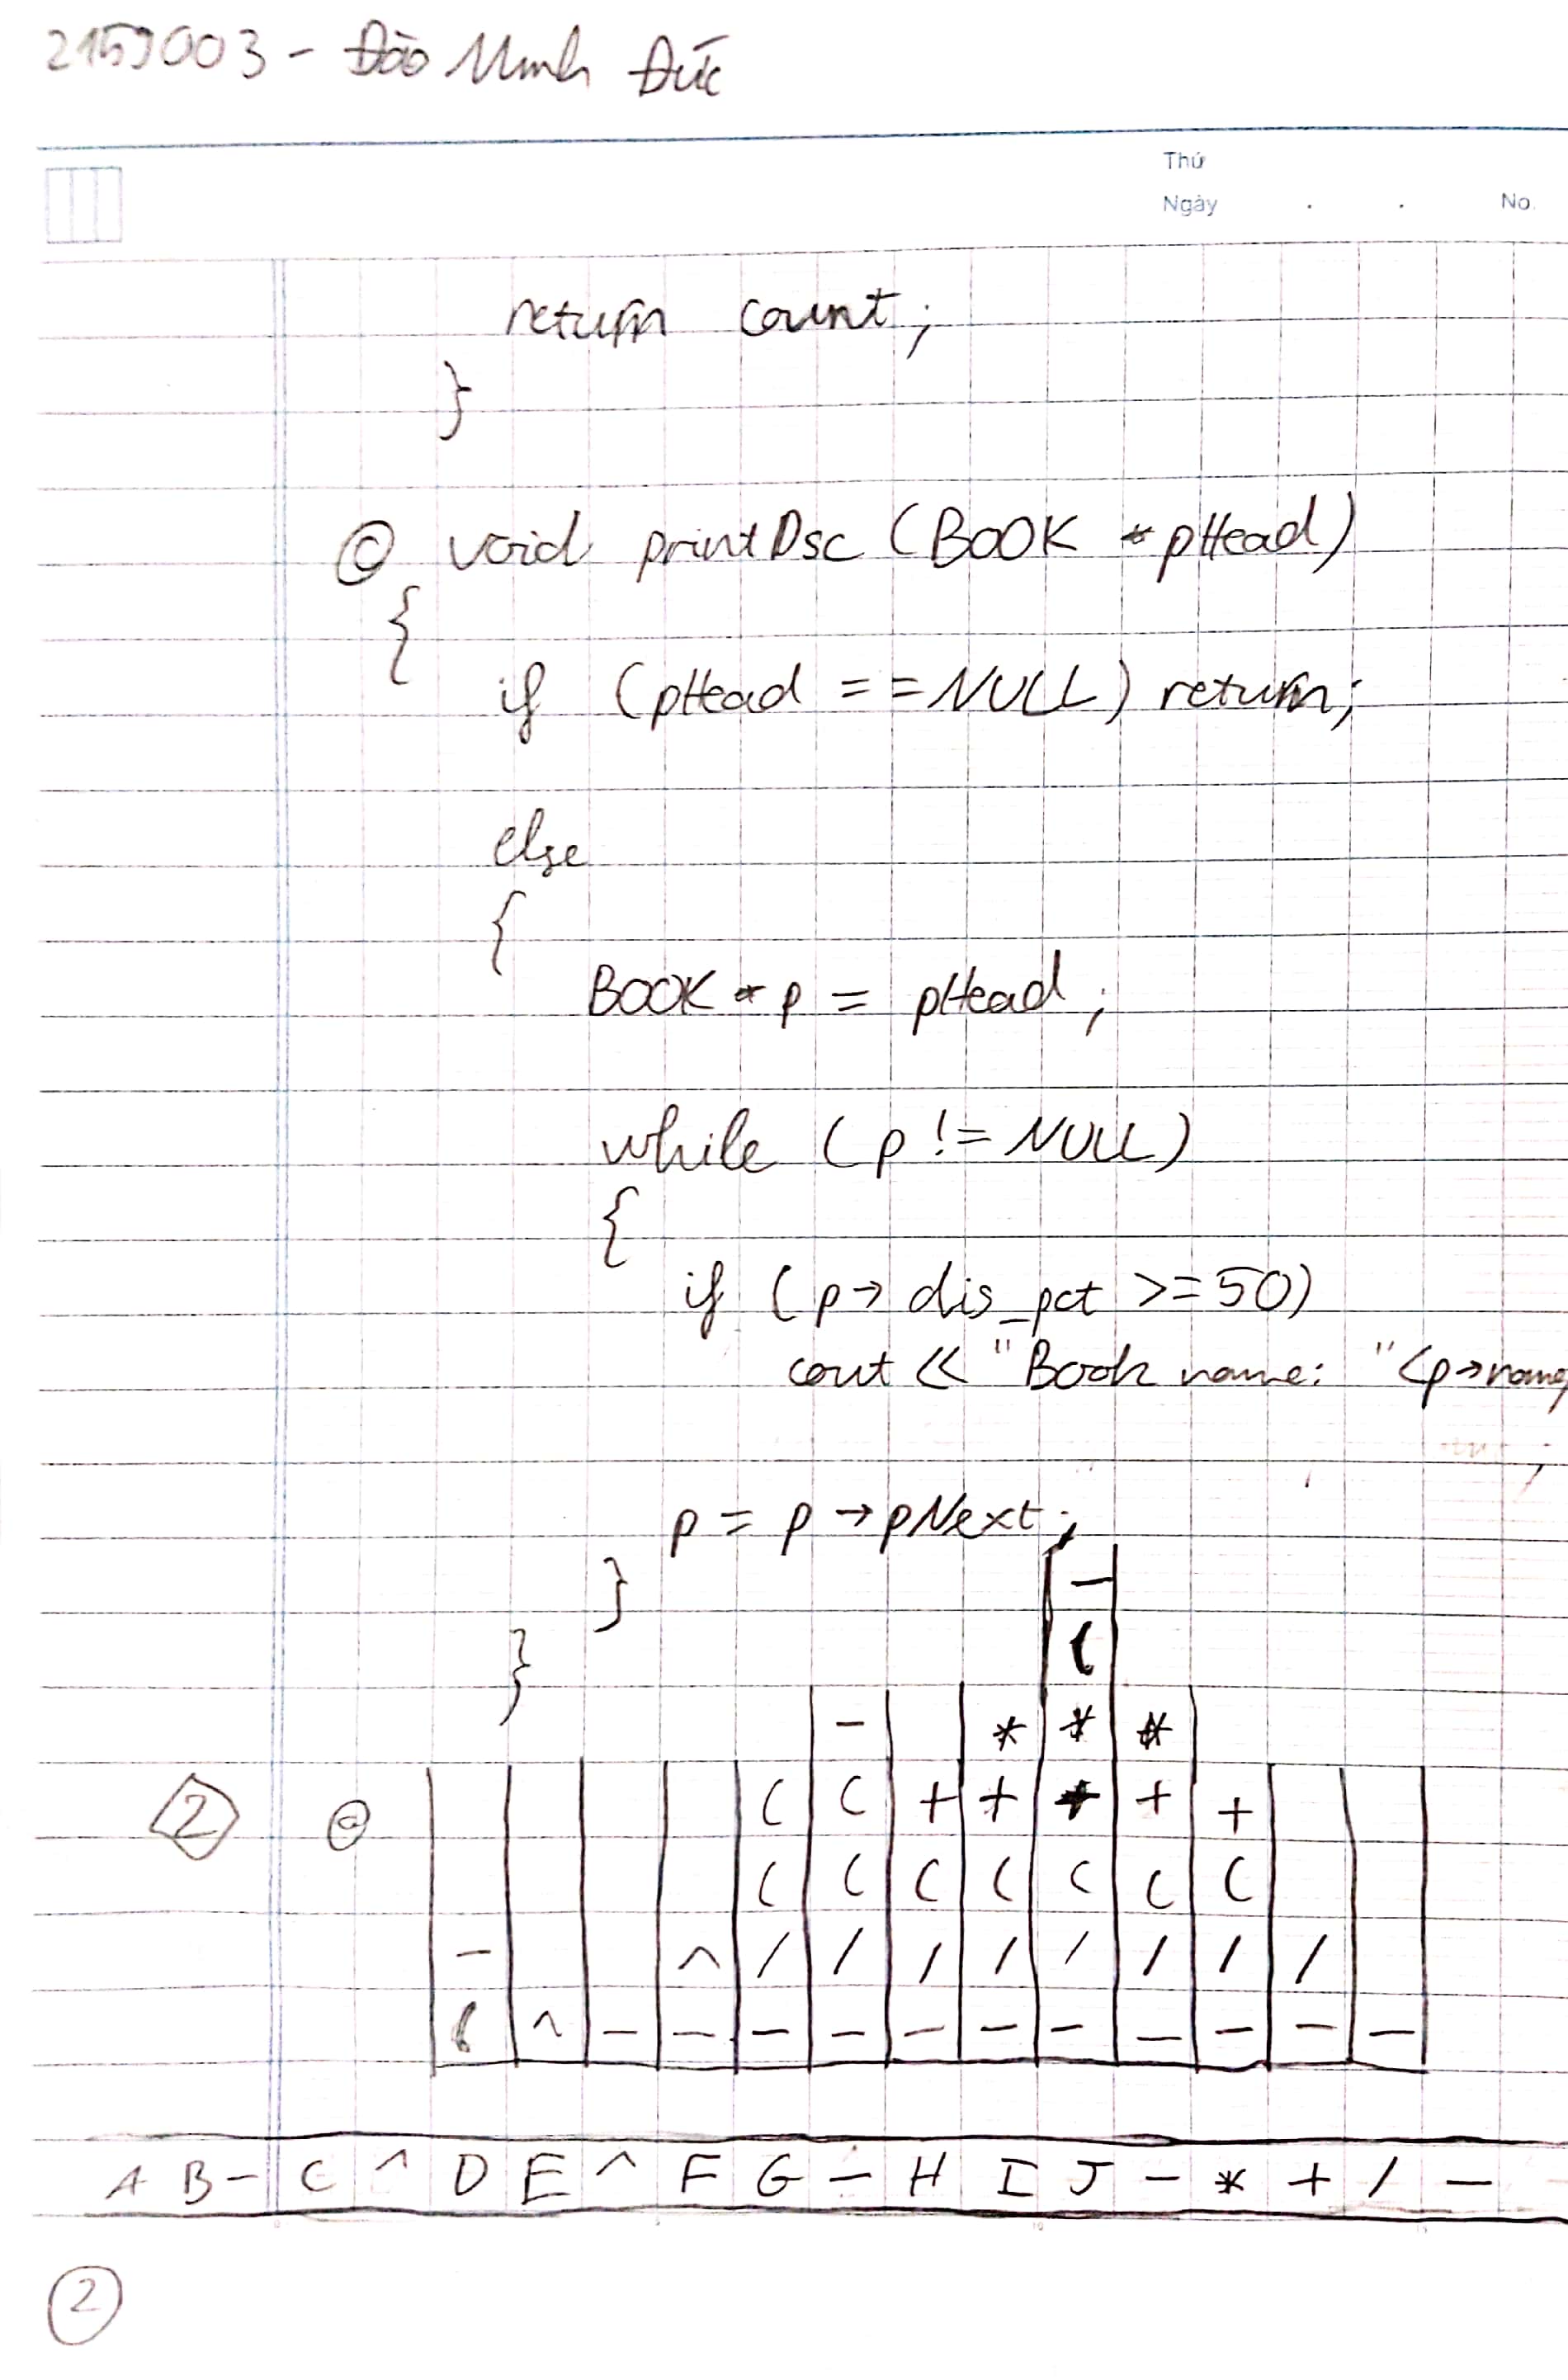 2159003 - Đào Minh Đức
Thứ
Ngày . . No.
return count;
}
c void printDsc (BOOK *pHead)
{
if (pHead == NULL) return;
else
{
BOOK * p = pHead;
while (p != NULL)
{
if (p → dis_pct >= 50)
cout << "Book name: " < p→name
;
p = p → pNext;
}
}
−
(
− * * *
2 ( ( + + + + +
( ( ( ( ( ( (
− ^ / / / / / / / /
( ^ − − − − − − − − − − −
A B − C ^ D E ^ F G − H I J − * + / −
2